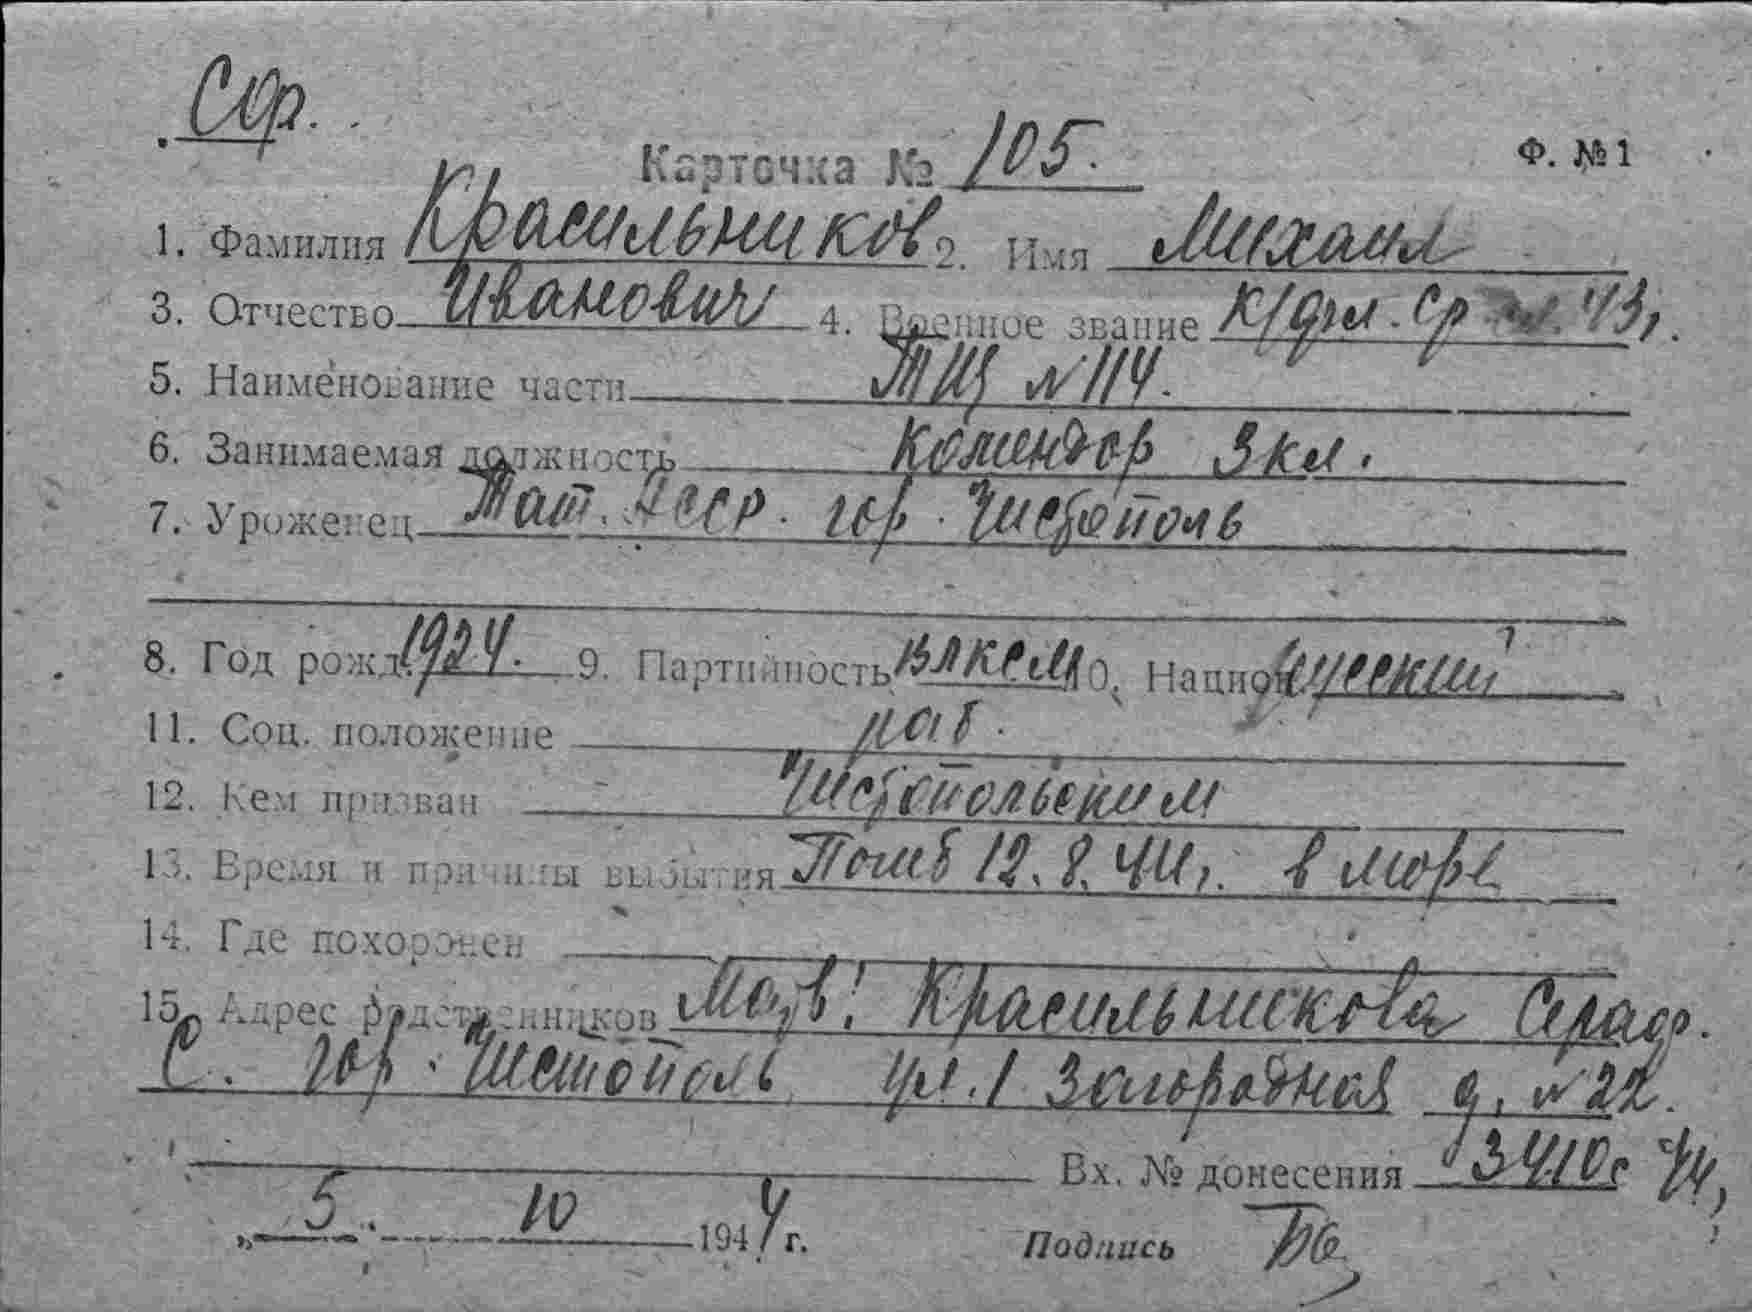 Сф.
Карточка № 105. Ф. №1
1. Фамилия Красильников 2. Имя Михаил
3. Отчество Иванович 4. Военное звание к/фл. ср 43г.
5. Наименование части ТЩ №114.
6. Занимаемая должность Комендор 3 кл.
7. Уроженец Тат. АССР. гор. Чистополь
8. Год рожд. 1924. 9. Партийность ВЛКСМ 10. Национ русский
11. Соц. положение раб.
12. Кем призван Чистопольским
13. Время и причины выбытия Погиб 12.8.44г. в море
14. Где похоронен
15. Адрес родственников Мать: Красильникова Сераф.
С. гор. Чистополь ул. 1 Загородная д. №22.
Вх. № донесения 3410с 44г
„5" 10 1944 г. Подпись